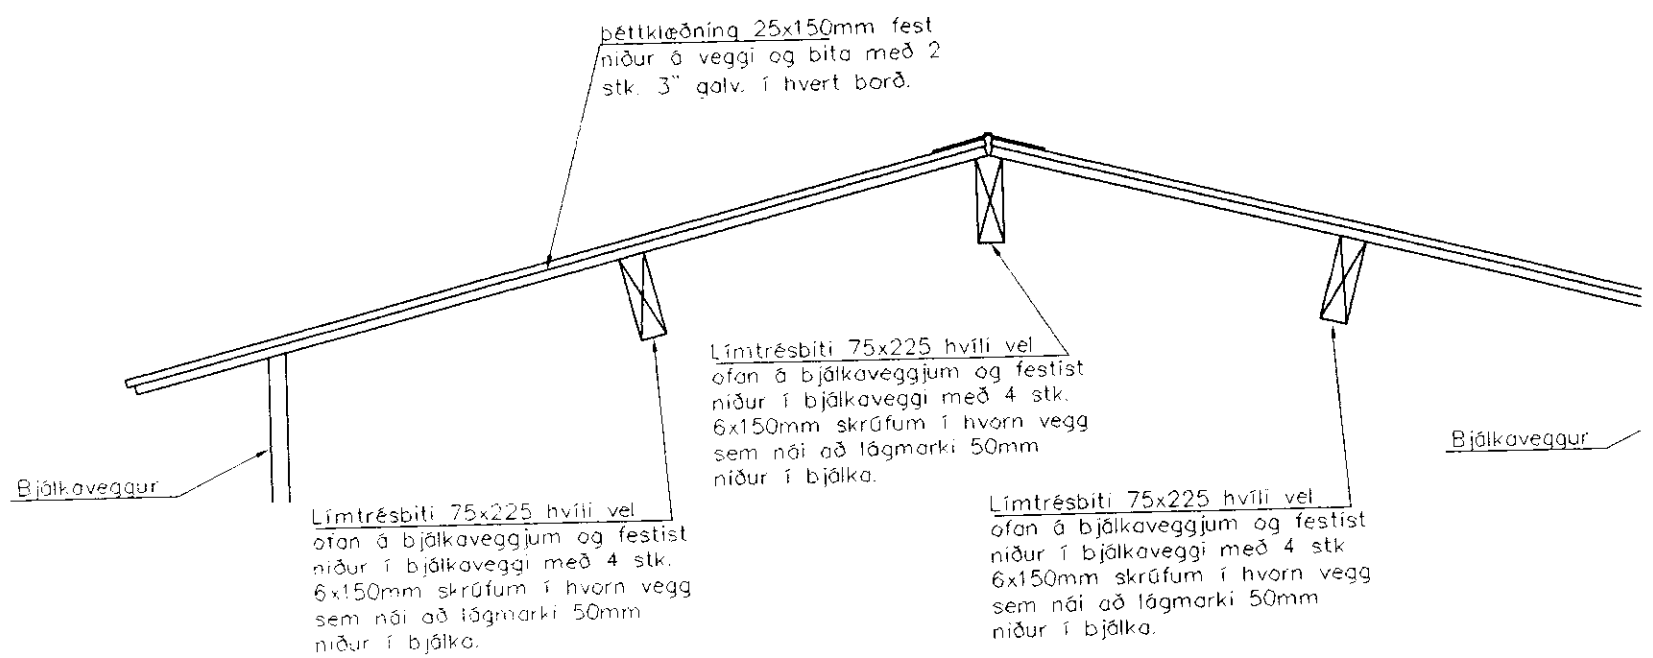 þéttklæðning 25x150mm fest
niður á veggi og bita með 2
stk. 3" galv. í hvert borð.
Límtrésbiti 75x225 hvíli vel
ofan á bjálkaveggjum og festist
niður í bjálkaveggi með 4 stk.
6x150mm skrúfum í hvorn vegg
sem nái að lágmarki 50mm
niður í bjálka.
Bjálkaveggur
Bjálkaveggur
Límtrésbiti 75x225 hvíli vel
ofan á bjálkaveggjum og festist
niður í bjálkaveggi með 4 stk.
6x150mm skrúfum í hvorn vegg
sem nái að lágmarki 50mm
niður í bjálka.
Límtrésbiti 75x225 hvíli vel
ofan á bjálkaveggjum og festist
niður í bjálkaveggi með 4 stk
6x150mm skrúfum í hvorn vegg
sem nái að lágmarki 50mm
niður í bjálka.